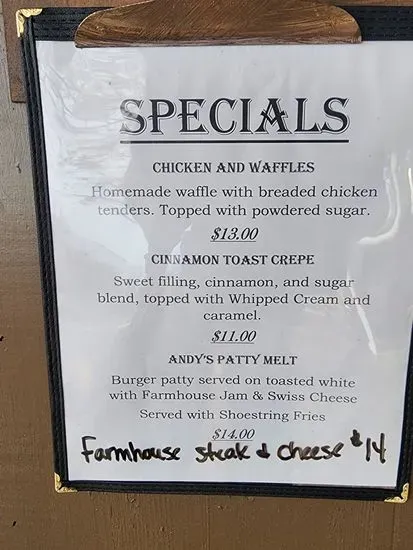 SPECIALS
CHICKEN AND WAFFLES
Homemade waffle with breaded chicken
tenders. Topped with powdered sugar.
$13.00
CINNAMON TOAST CREPE
Sweet filling, cinnamon, and sugar
blend, topped with Whipped Cream and
caramel.
$11.00
ANDY'S PATTY MELT
Burger patty served on toasted white
with Farmhouse Jam & Swiss Cheese
Served with Shoestring Fries
$14.00
Farmhouse steak & cheese $14